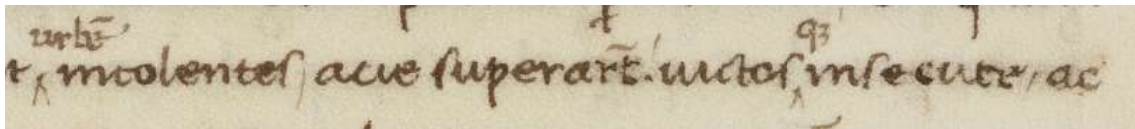 t urbē incolentes acie superar̄t. uictos qꝫ insecute, ac